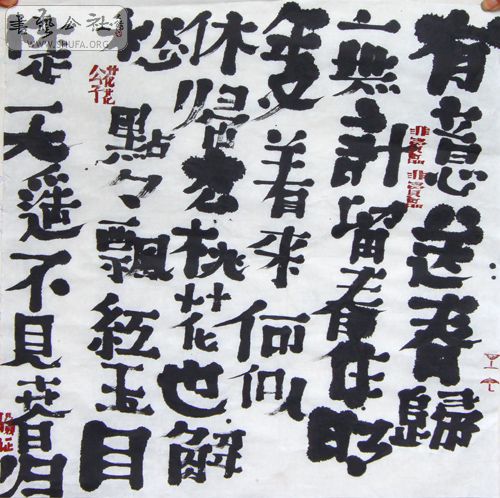 書藝公社
WWW.SHUFA.ORG
有意送春歸
無計留春住明
年又着來何似
休归去桃花也解
愁點々飄紅玉目
天遥不見春归